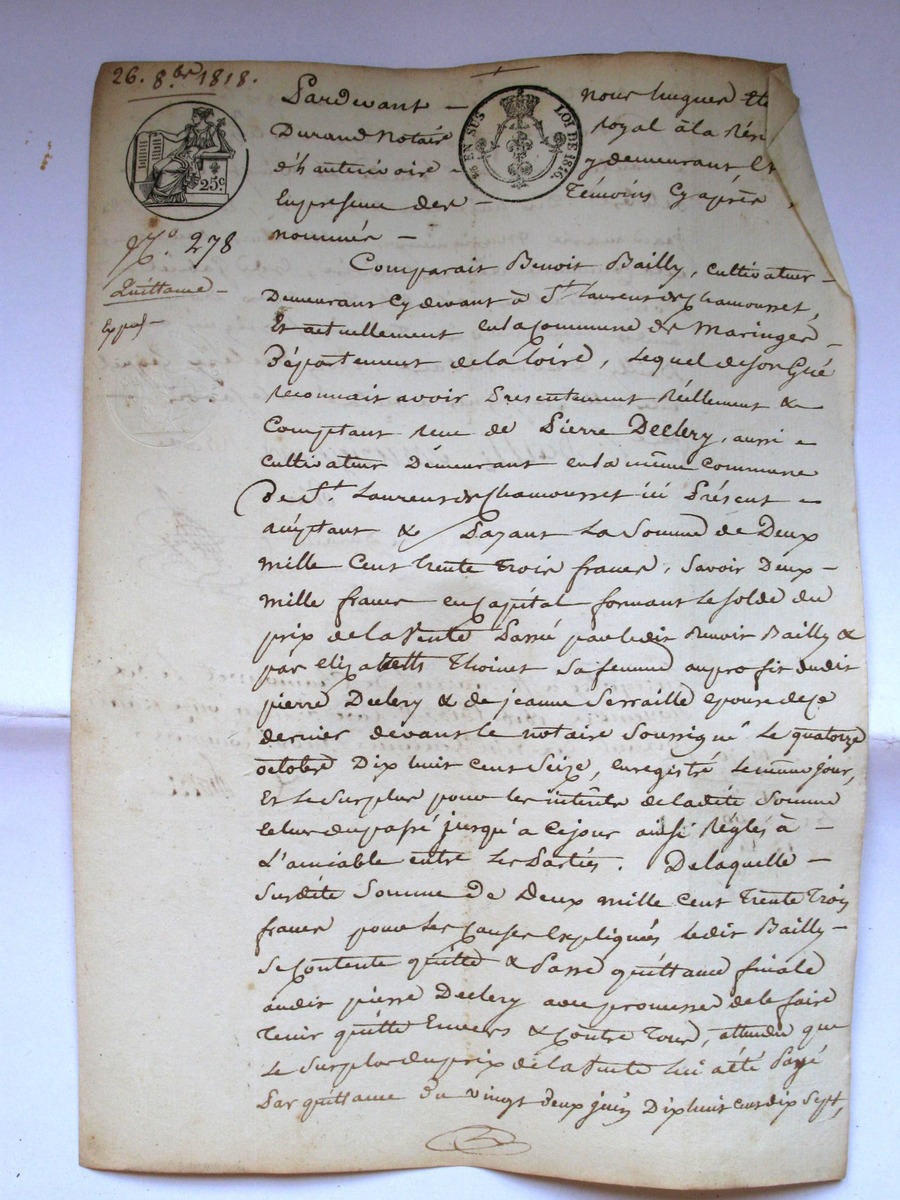 26. 8.bre 1818.
Pardevant - nous hugues
Durand Notaire royal à la Rési
d'hauterivoire - y demeurant &
En presence des - Témoins Cy après,
nommés -
EN SUS
LOI DE 1816.
25c
No. 278
Quittance -
Comparait Benoit Bailly, cultivateur -
Demeurant Cy devant à St. Laurent de Chamousset,
Et actuellement en la Commune de Maringes -
Département de la Loire, lequel de son Gré
reconnait avoir Presentement Réellement &
Comptant reçu de Pierre Declery, aussi -
cultivateur Demeurant en la même Commune
De St. Laurent de Chamousset ici Présent -
acceptant & Payant La Somme de Deux
mille Cent trente trois francs, Savoir Deux -
mille francs en Capital formant le solde du
prix de la vente Passée par ledit Benoit Bailly &
par Elizabeth Thoinet Sa femme au profit dudit
pierre Declery & de jeanne Serraille epouse de ce
dernier devant le notaire Soussigné Le quatorze
octobre Dix huit Cent Seize, enregistré le même jour,
Et le Surplus pour les intérêts de ladite Somme
du passé jusqu'à ce jour ainsi Réglés à -
L'amiable entre les Parties. De laquelle -
Susdite Somme de Deux mille Cent trente trois
francs pour les Causes Expliquées Ledit Bailly -
Se Contente quitte & Passe quittance finale
audit pierre Declery avec promesse de le faire
tenir quitte Envers & Contre tous, attendu que
Le Surplus du prix de la vente lui a été Payé
Par quittance du vingt deux juin Dix huit cent dix Sept,